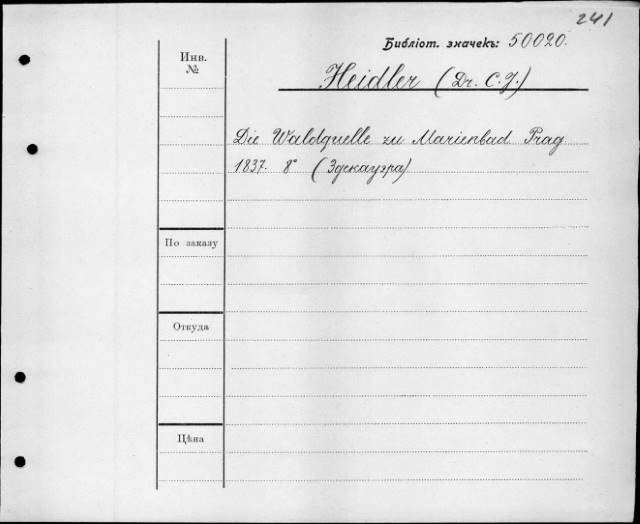 241
Библіот. значекъ: 50020.
Инв.
№
Heidler (Dr. C. J.)
Die Waldquelle zu Marienbad Prag
1837. 8° (Здекауэра)
По заказу
Откуда
Цѣна